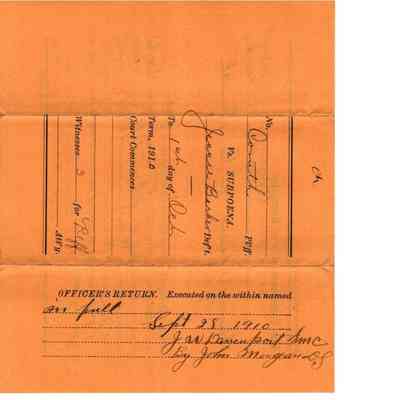 Ch
No.
Comth Plff.
Vs. SUBPOENA.
Jesse Barker Deft.
To 1st day of Oct.
Term, 1910
Court Commences
Witnesses 3 for Plff
Att'y.
OFFICER'S RETURN. Executed on the within named
in full
Sept 28 1910
J W Davenport SMC
By John Mongean D.S